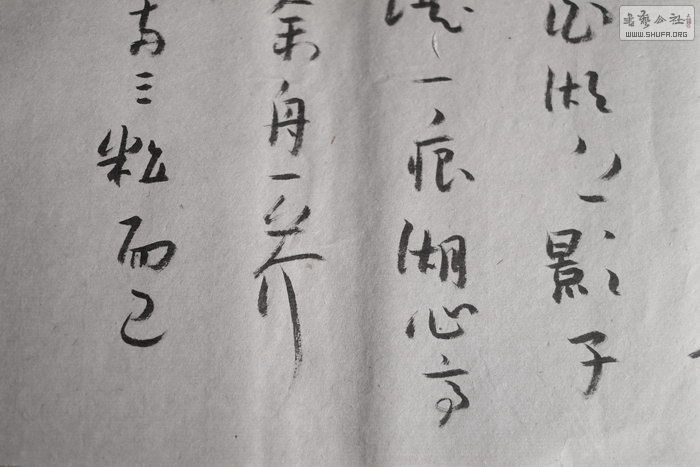 白湖上影子
堤一痕湖心亭
余舟一芥
两三粒而已
書藝公社
WWW.SHUFA.ORG